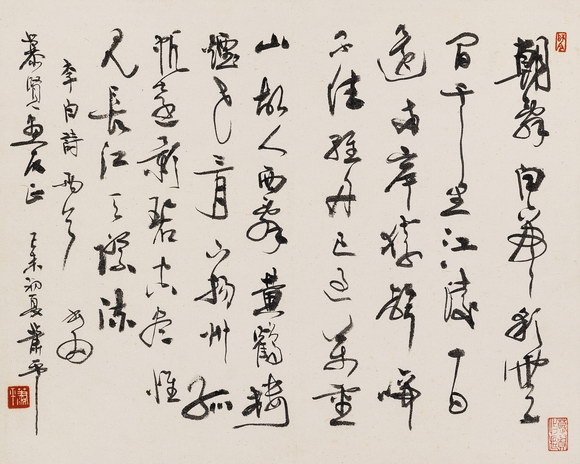 朝辭白帝彩雲
間千里江陵一日
還兩岸猿聲啼
不住輕舟已過萬重
山故人西辭黃鶴樓
煙花三月下揚州孤
帆遠影碧空盡惟
見長江天際流
李白詩兩首
慕賢正 未初夏蕭平
蕭平